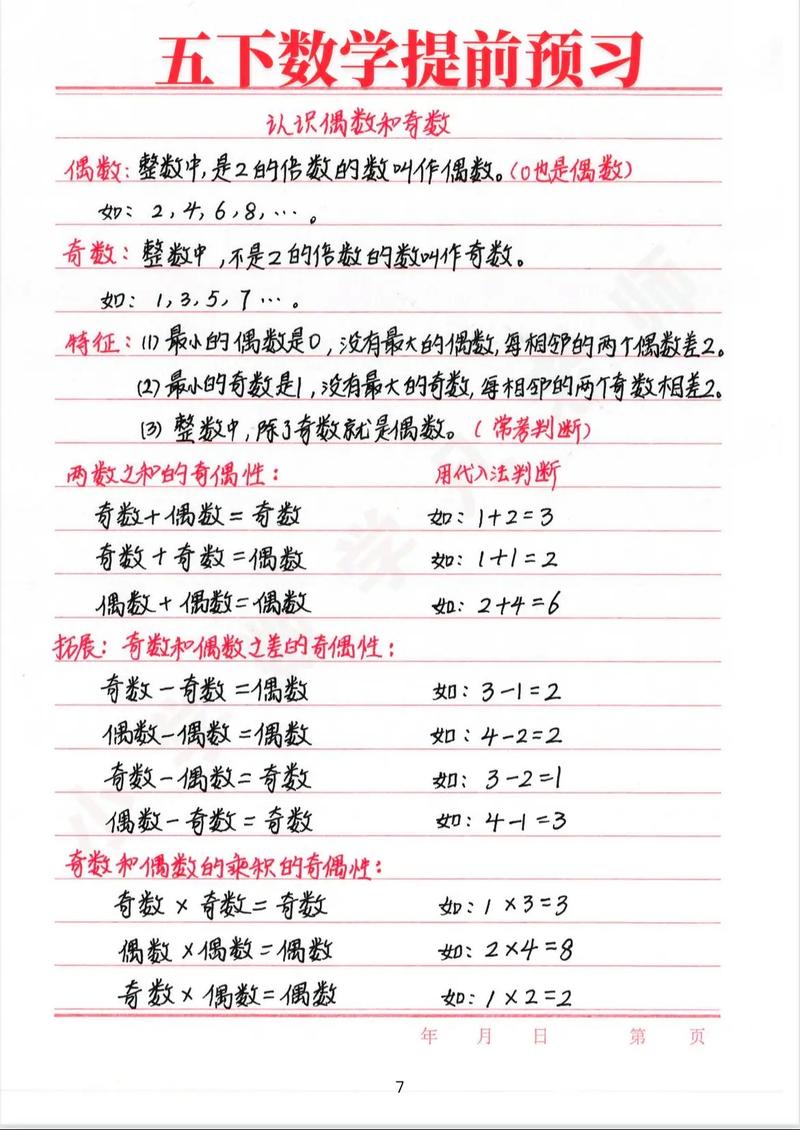 五下数学提前预习
认识偶数和奇数
偶数：整数中，是2的倍数的数叫作偶数。（0也是偶数）
如：2，4，6，8，…。
奇数：整数中，不是2的倍数的数叫作奇数。
如：1，3，5，7…。
特征：(1) 最小的偶数是0，没有最大的偶数，每相邻的两个偶数差2。
(2) 最小的奇数是1，没有最大的奇数，每相邻的两个奇数相差2。
(3) 整数中，除了奇数就是偶数。（常考判断）
两数之和的奇偶性： 用代入法判断
奇数＋偶数＝奇数 如：1+2=3
奇数＋奇数＝偶数 如：1+1=2
偶数＋偶数＝偶数 如：2+4=6
拓展：奇数和偶数之差的奇偶性：
奇数－奇数＝偶数 如：3-1=2
偶数－偶数＝偶数 如：4-2=2
奇数－偶数＝奇数 如：3-2=1
偶数－奇数＝奇数 如：4-1=3
奇数和偶数的乘积的奇偶性：
奇数×奇数＝奇数 如：1×3=3
偶数×偶数＝偶数 如：2×4=8
奇数×偶数＝偶数 如：1×2=2
年 月 日 第 页
7